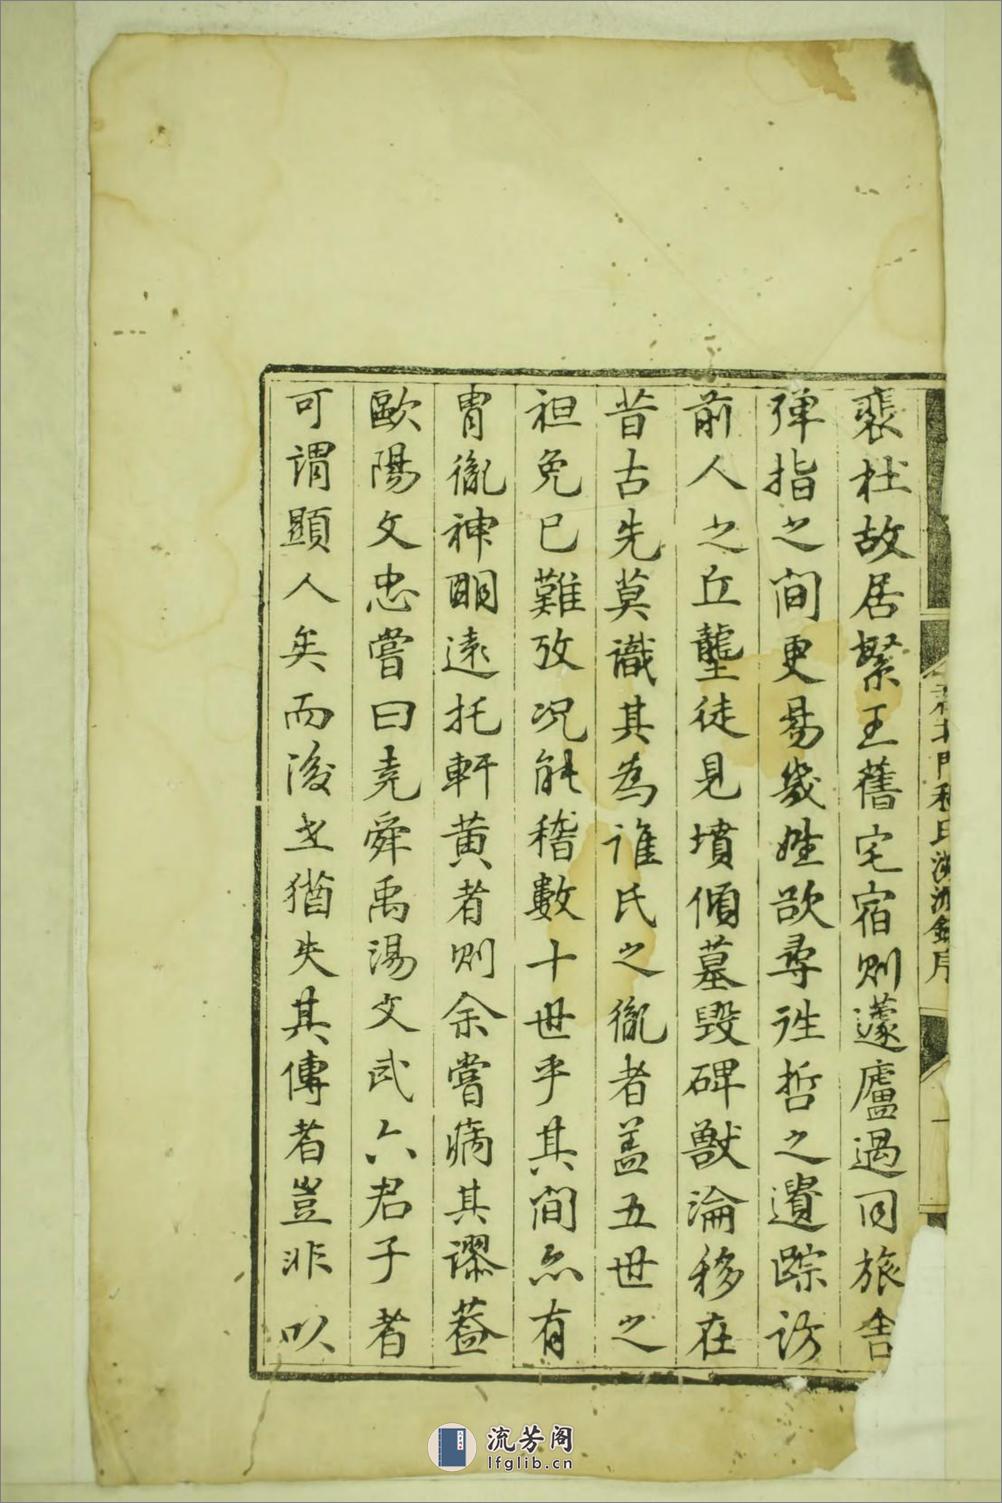 裴杜故居繄王舊宅宿則蘧廬過同旅舍
彈指之間更易幾姓欲尋徃哲之遺踪訪
前人之丘壟徒見墳傾墓毀碑獸淪移在
昔古先莫識其為誰氏之胤者盖五世之
袒免已難攷况能稽數十世乎其間亦有
胄胤神明遠托軒黃者則余嘗病其謬葢
歐陽文忠嘗曰堯舜禹湯文武六君子者
可謂顯人矣而後世猶失其傳者豈非以
北門程氏
序
一
流芳阁
lfglib.cn